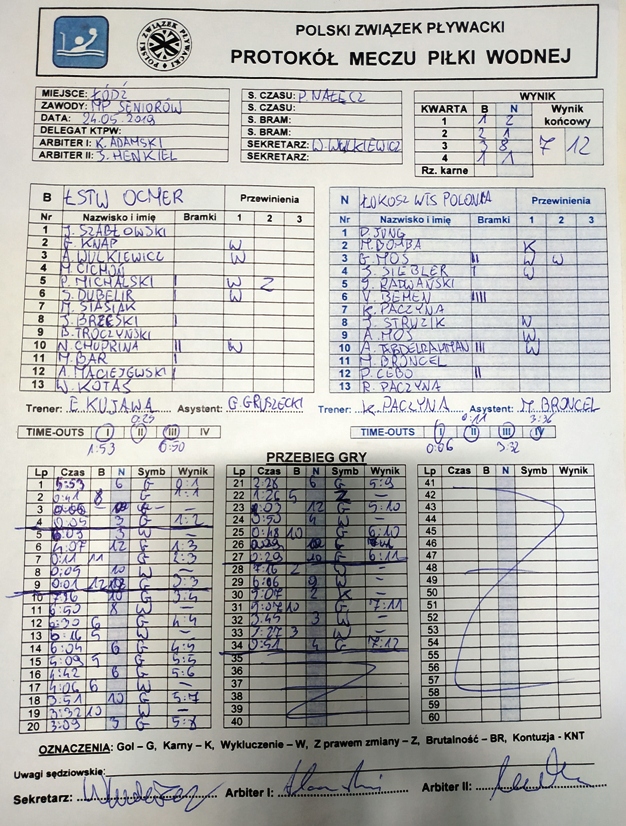 POLSKI ZWIĄZEK PŁYWACKI
PROTOKÓŁ MECZU PIŁKI WODNEJ
POLSKI ZWIĄZEK PŁYWACKI
MIEJSCE: ŁÓDŹ
ZAWODY: MP SENIORÓW
DATA: 24.05 2019
DELEGAT KTPW:
ARBITER I: K. ADAMSKI
ARBITER II: S. HENKIEL
S. CZASU: P. NAŁĘCZ
S. CZASU:
S. BRAM:
S. BRAM:
SEKRETARZ: W. WULKIEWICZ
SEKRETARZ:
WYNIK
KWARTA B N Wynik końcowy
1 1 2
2 2 1
3 3 8
4 1 1
7 12
Rz. karne
B ŁSTW OCMER Przewinienia
Nr Nazwisko i imię Bramki 1 2 3
1 J. SZABŁOWSKI
2 F. KNAP W
3 A. WULKIEWICZ W
4 M. CICHOŃ
5 P. MICHALSKI I W Z
6 S. DUBELIR W
7 M. STASIAK
8 J. BRZESKI I
9 B. TROCZYŃSKI
10 N. CHUPRINA II W
11 M. BAR I
12 A. MACIEJEWSKI I
13 W. KOTAS
N ŁUKOSZ WTS POLONIA Przewinienia
Nr Nazwisko i imię Bramki 1 2 3
1 D. JUNG
2 M. BOMBA K
3 G. MOS II W W
4 S. SIEBLER I W
5 S. RADWAŃSKI
6 V. BEMEN IIII
7 K. PACZYNA
8 S. STRUZIK W
9 A. MOS W
10 A. ABDELRAHMAN III W
11 M. BRONCEL
12 P. CEBO II
13 R. PACZYNA
Trener: E. KUJAWA Asystent: G. GRUSZECKI
Trener: K. PACZYNA Asystent: M. BRONCEL
0:25
TIME-OUTS I II III IV
1:53 6:50
0:11 3:36
TIME-OUTS I II III IV
0:06 3:32
PRZEBIEG GRY
Lp Czas B N Symb Wynik
1 5:53 6 G 0:1
2 0:41 8 G 1:1
3
4 0:05 3 G 1:2
5 6:03 3 W –
6 6:07 12 G 1:3
7 0:11 11 G 2:3
8 0:09 10 W –
9 0:01 12 G 3:3
10 7:36 10 G 3:4
11 6:50 8 W –
12 6:30 6 G 4:4
13 6:16 5 W –
14 6:04 6 G 4:5
15 5:09 5 G 5:5
16 4:42 6 G 5:6
17 4:06 6 W –
18 3:51 10 G 5:7
19 3:32 10 W –
20 3:09 3 G 5:8
Lp Czas B N Symb Wynik
21 2:28 6 G 5:9
22 1:26 5 Z –
23 1:03 12 G 5:10
24 0:50 4 W –
25 0:48 10 G 6:10
26
27 0:29 10 G 6:11
28 7:16 2 W –
29 6:06 9 W –
30 5:07 2 K –
31 5:07 10 G 7:11
32 3:45 3 W –
33 1:27 3 W –
34 0:51 4 G 7:12
35
36
37
38
39
40
41
42
43
44
45
46
47
48
49
50
51
52
53
54
55
56
57
58
59
60
OZNACZENIA: Gol – G, Karny – K, Wykluczenie – W, Z prawem zmiany – Z, Brutalność – BR, Kontuzja - KNT
Uwagi sędziowskie:
Sekretarz: Arbiter I: Arbiter II: